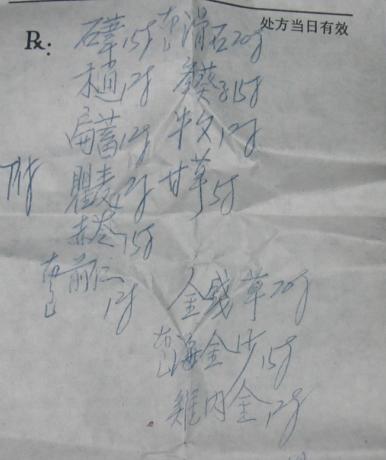 处方当日有效
R:
石葦15g 布包滑石20g
木通12g 冬葵子15g
扁蓄12g 牛夕12g
瞿麦12g 甘草5g
赤苓15g
布包前仁12g
金錢草20g
布包海金沙15g
雞内金12g